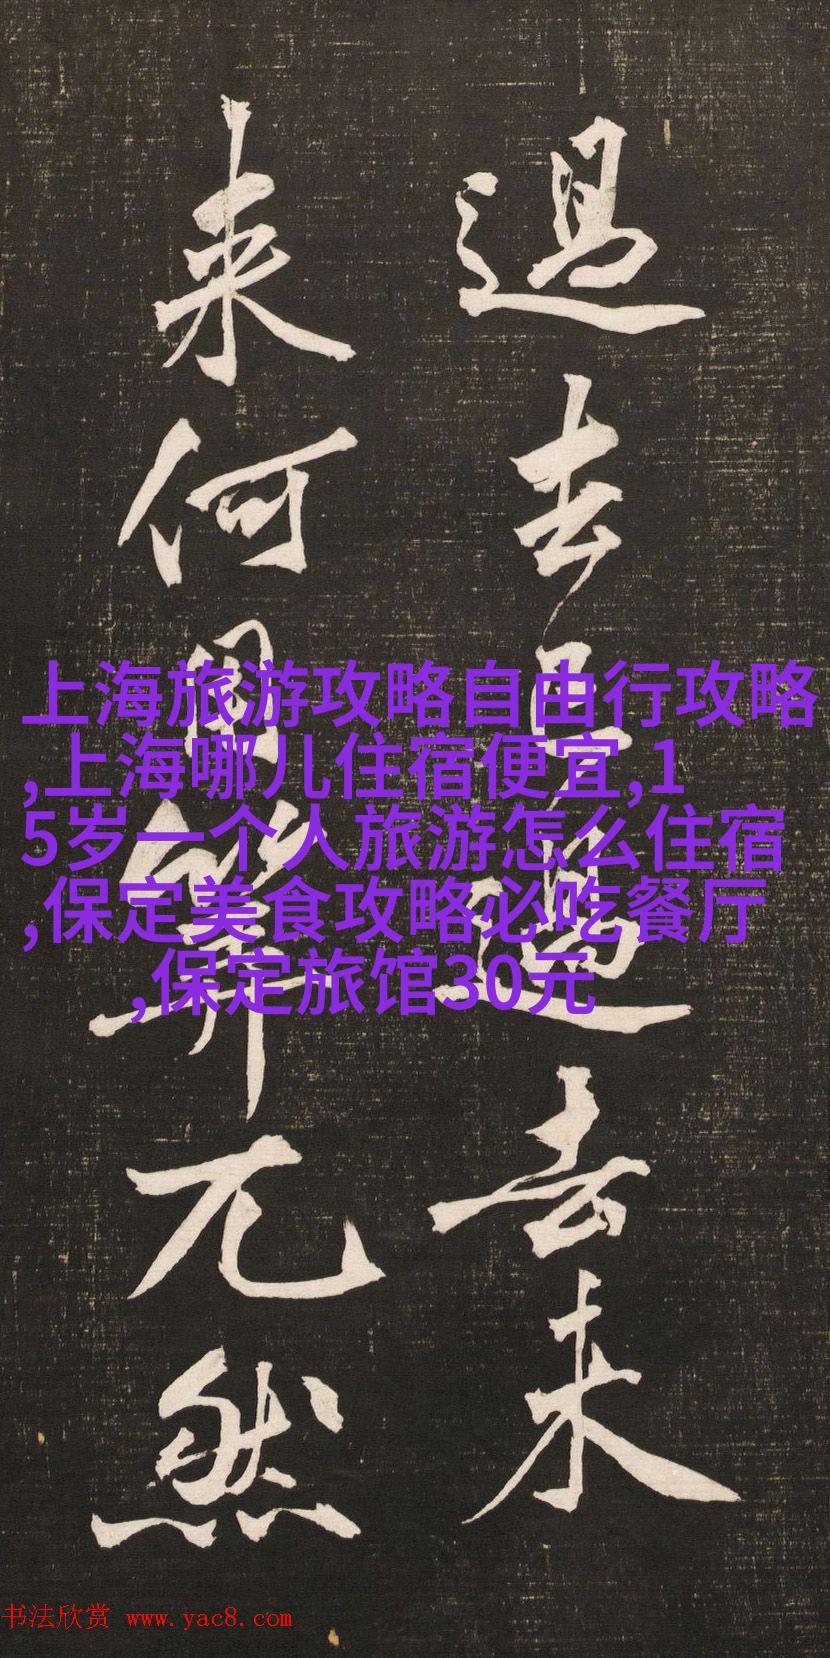 過去已過去未
来何用算兀然
上海旅游攻略自由行攻略
,上海哪儿住宿便宜,1
5岁一个人旅游怎么住宿
,保定美食攻略必吃餐厅
,保定旅馆30元
书法欣赏 www.yac8.com